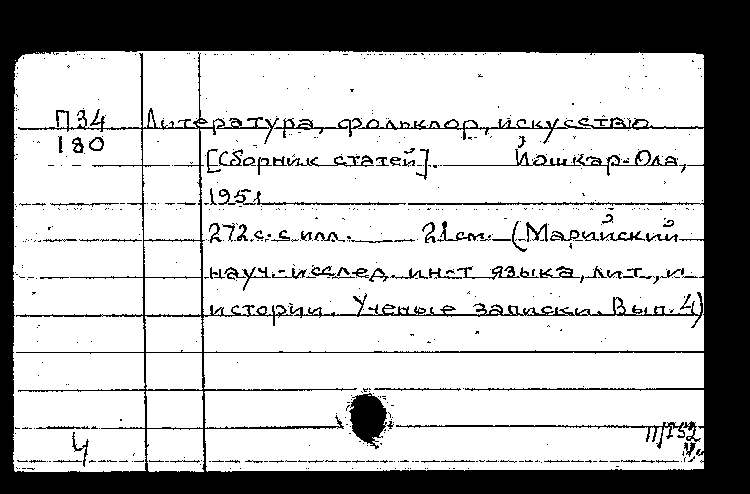 П34 Литература, фольклор, искусство
180 [Сборник статей]. Йошкар-Ола,
1951
272с. с илл. 21см. (Марийский
науч.-исслед. ин-т языка, лит., и
истории. Ученые записки. Вып. 4)
4